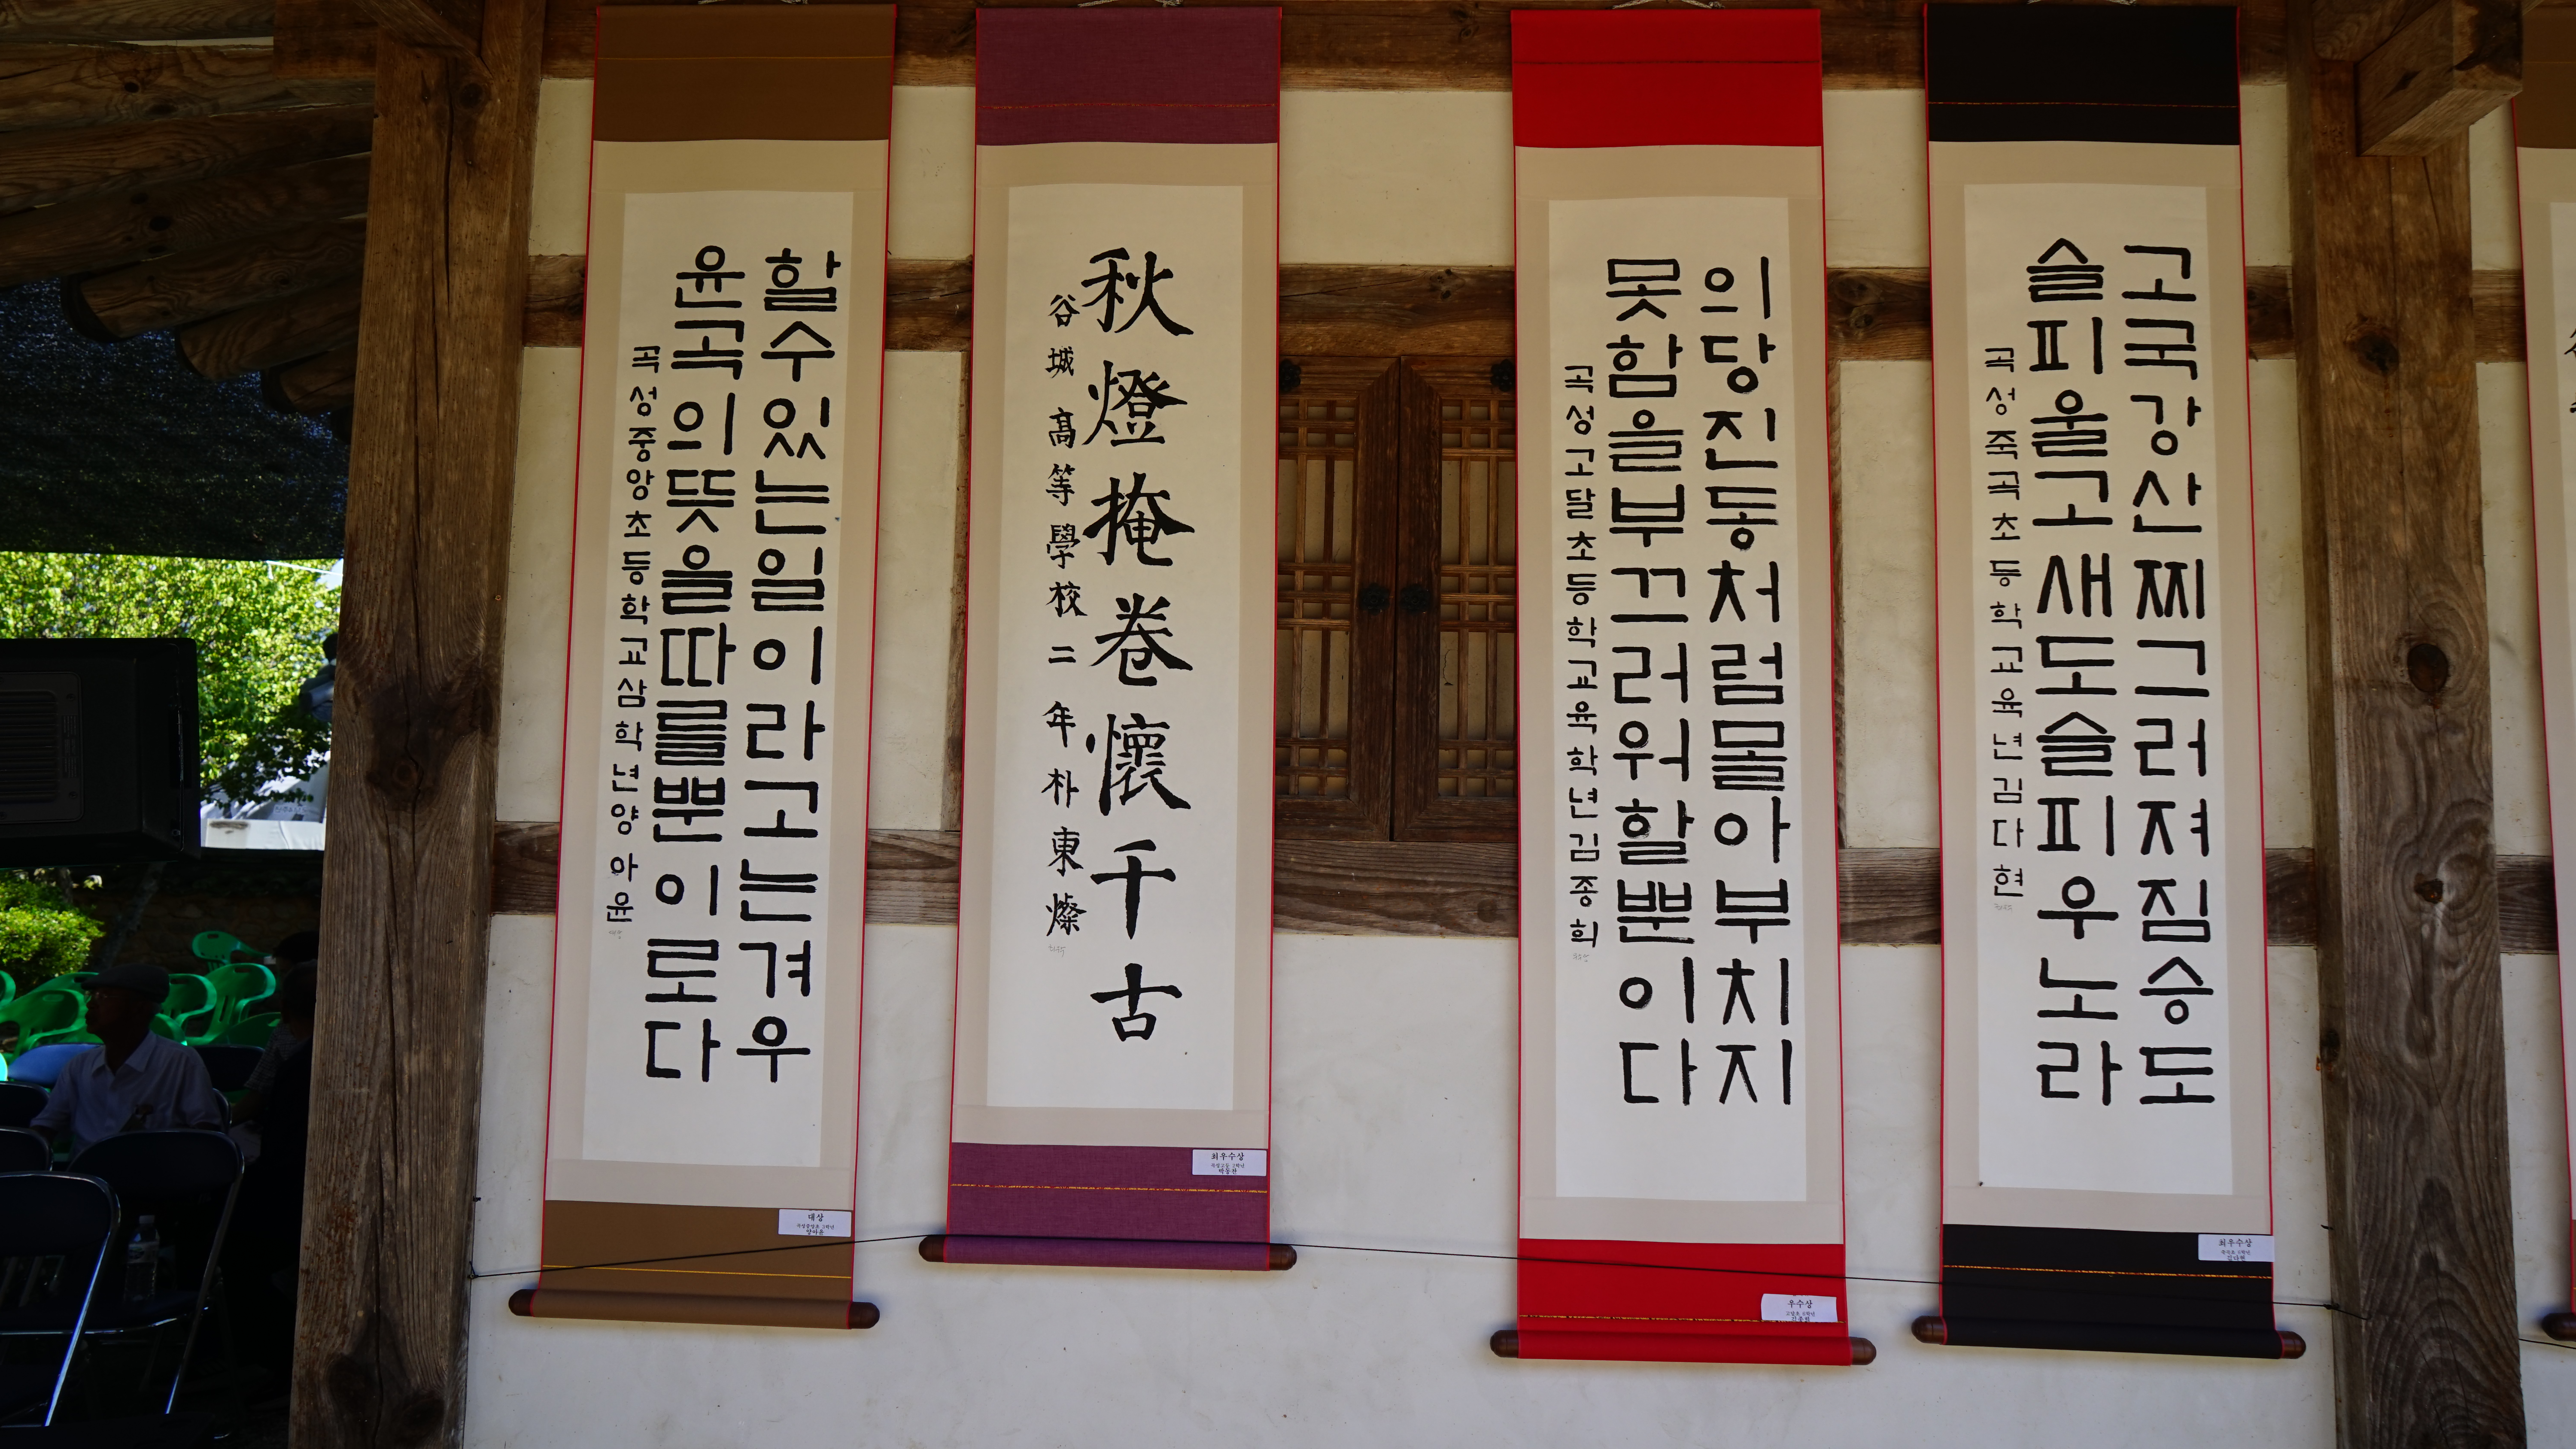 할수있는일이라고는겨우
윤곡의뜻을따를뿐이로다
곡성중앙초등학교삼학년양아윤
대상
양아윤
秋燈掩卷懷千古
谷城高等學校二年朴東燦
최우수상
박동찬
의당진동처럼몰아부치지
못함을부끄러워할뿐이다
곡성고달초등학교육학년김종희
우수상
김종희
고국강산찌그러져짐승도
슬피울고새도슬피우노라
곡성죽곡초등학교육년김다현
최우수상
김다현